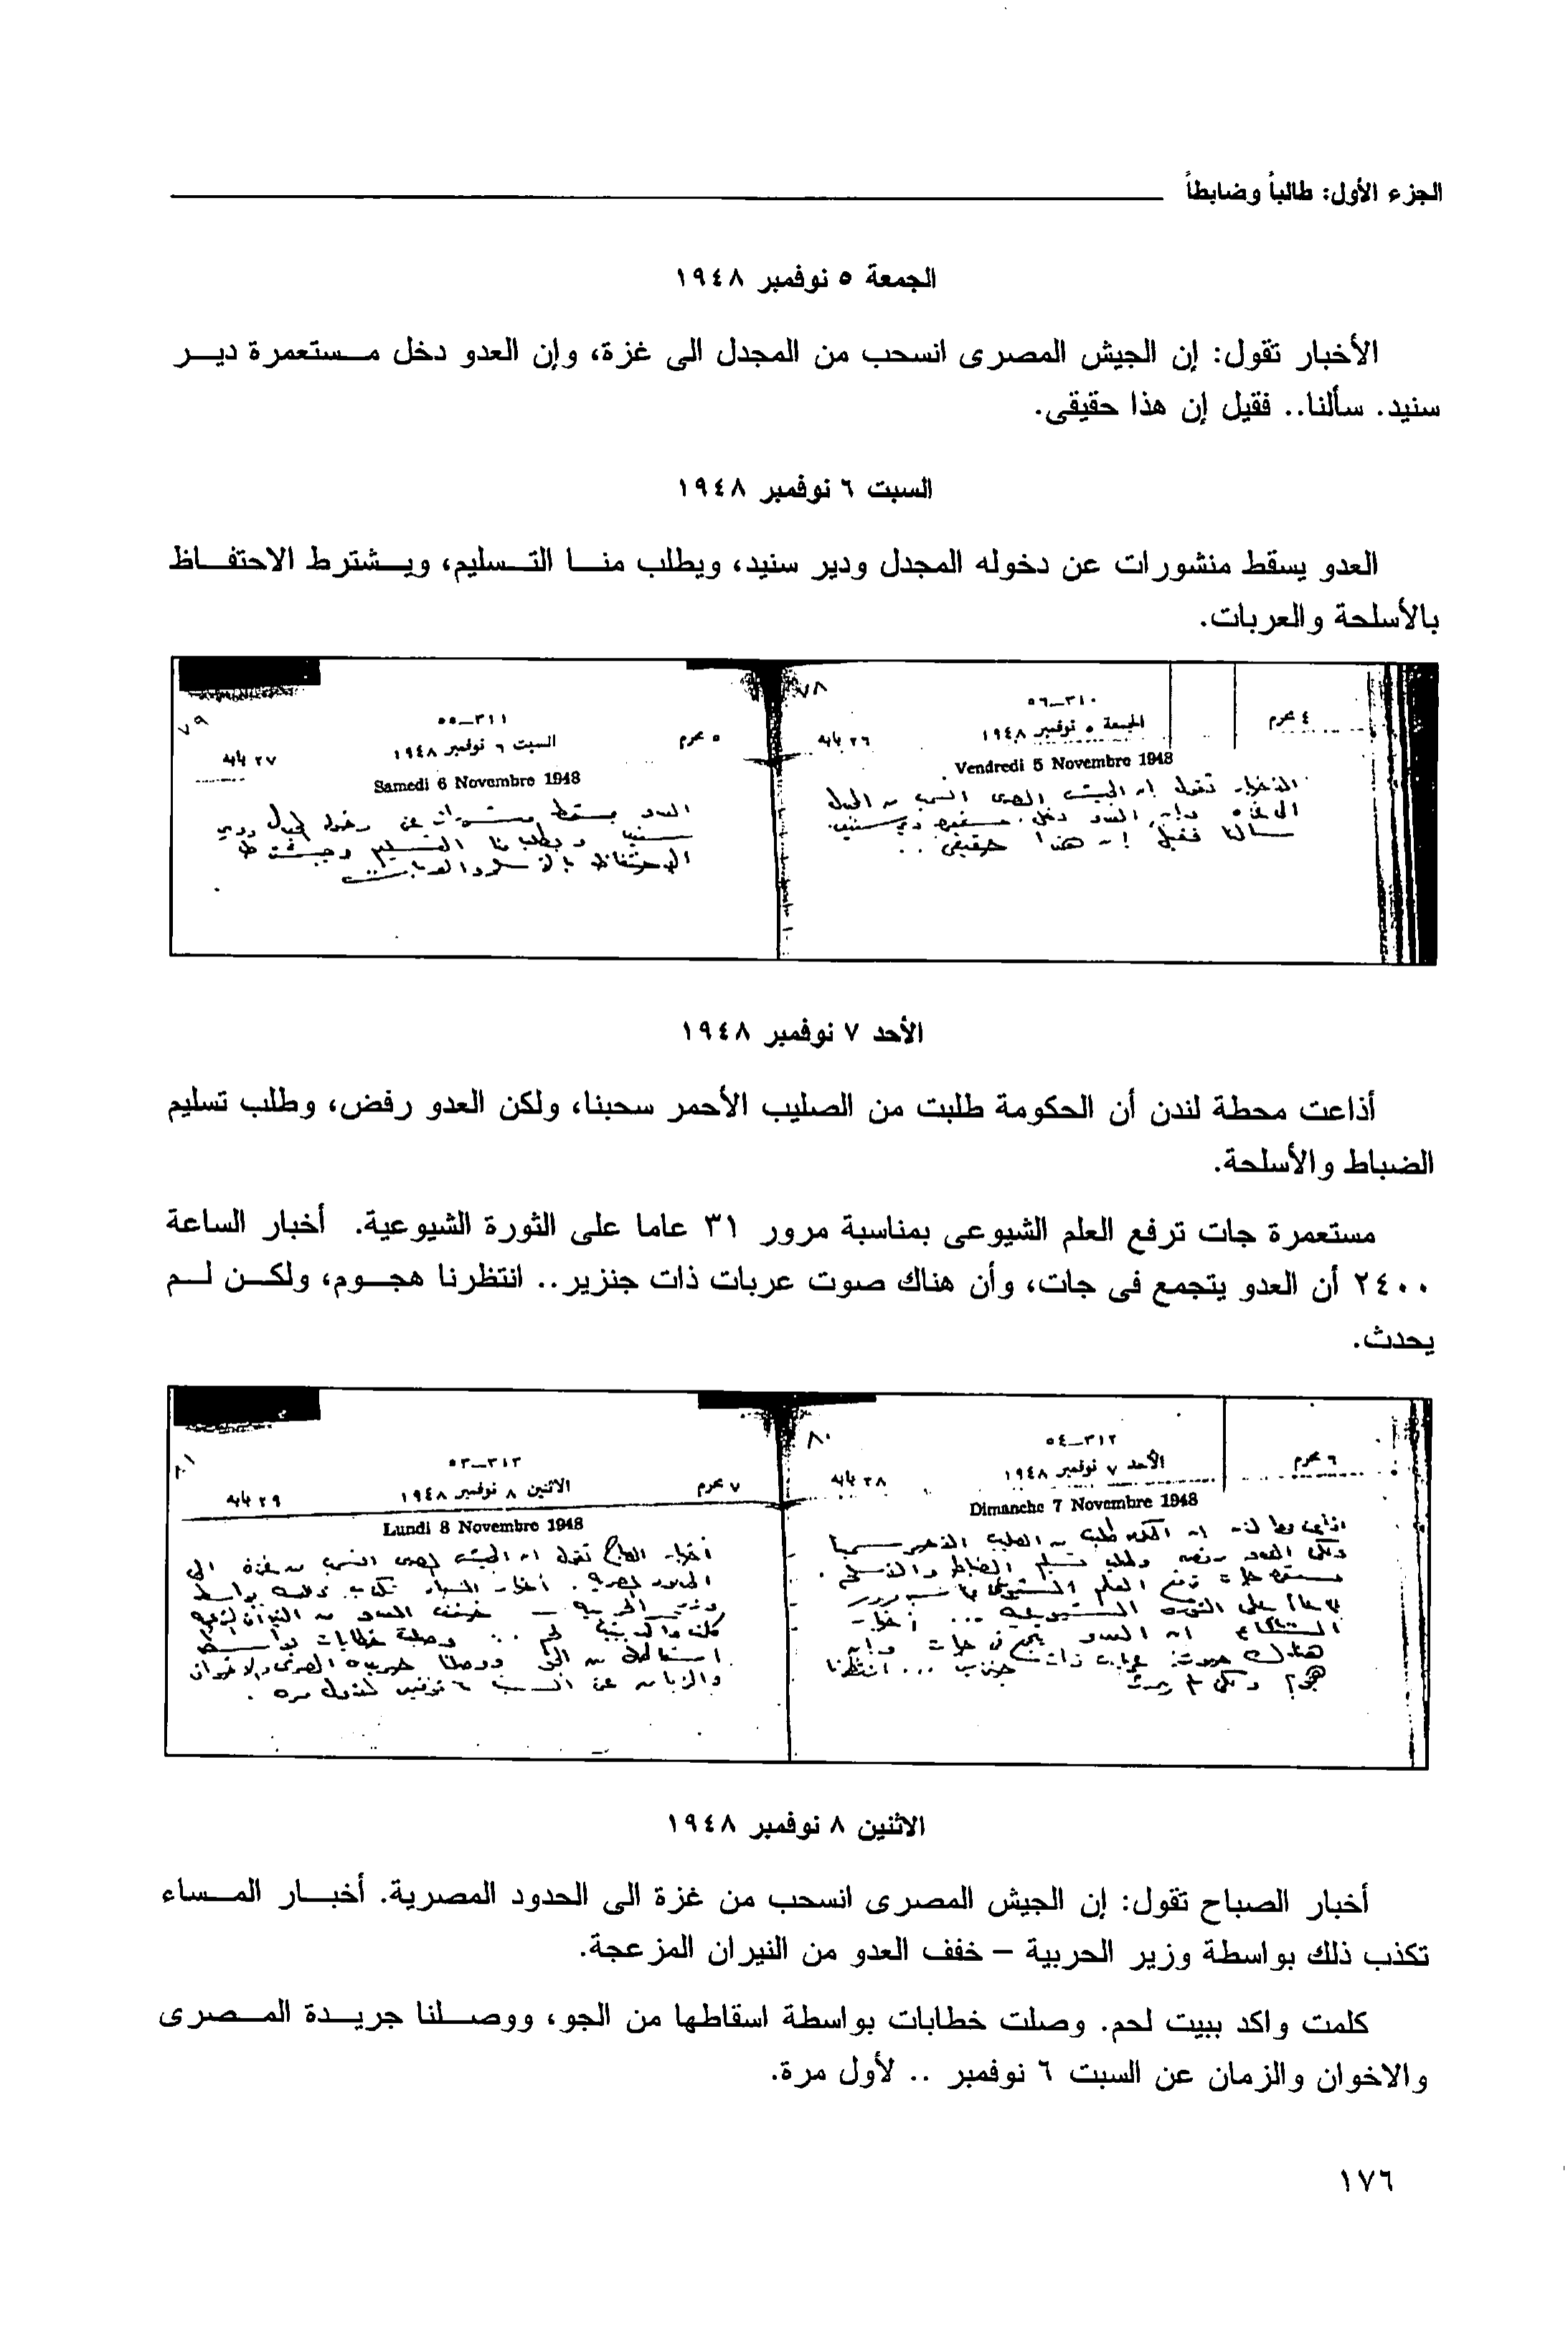 الجزء الأول: طالباً وضابطاً
الجمعة ٥ نوفمبر ١٩٤٨
الأخبار تقول: إن الجيش المصرى انسحب من المجدل الى غزة، وإن العدو دخل مستعمرة دير
سنيد. سألنا.. فقيل إن هذا حقيقى.
السبت ٦ نوفمبر ١٩٤٨
العدو يسقط منشورات عن دخوله المجدل ودير سنيد، ويطلب منا التسليم، ويشترط الاحتفاظ
بالأسلحة والعربات.
٧٨
٣١٠–٥٦
٤ محرم
الجمعة ٥ نوفمبر ١٩٤٨
٢٦ بابه
Vendredi 5 Novembre 1948
الأخبار تقول ان الجيش المصرى انسحب من المجدل
الى غزه وان العدو دخل مستعمره دير سنيد
سألنا فقيل ان هذا حقيقى ..
٧٩
٣١١–٥٥
٥ محرم
السبت ٦ نوفمبر ١٩٤٨
٢٧ بابه
Samedi 6 Novembre 1948
العدو يسقط منشورات عن دخوله المجدل ودير
سنيد ويطلب منا التسليم ويشترط
الاحتفاظ بالأسلحه والعربات
الأحد ٧ نوفمبر ١٩٤٨
أذاعت محطة لندن أن الحكومة طلبت من الصليب الأحمر سحبنا، ولكن العدو رفض، وطلب تسليم
الضباط والأسلحة.
مستعمرة جات ترفع العلم الشيوعى بمناسبة مرور ٣١ عاما على الثورة الشيوعية. أخبار الساعة
٢٤٠٠ أن العدو يتجمع فى جات، وأن هناك صوت عربات ذات جنزير.. انتظرنا هجوم، ولكن لم
يحدث.
٨٠
٣١٢–٥٤
٦ محرم
الأحد ٧ نوفمبر ١٩٤٨
٢٨ بابه
Dimanche 7 Novembre 1948
اذاعت محطة لندن ان الحكومه طلبت من الصليب الأحمر سحبنا
ولكن العدو رفض وطلب تسليم الضباط والأسلحه .
مستعمره جات ترفع العلم الشيوعى بمناسبه مرور
٣١ عاما على الثوره الشيوعيه ... أخبار
الساعه ان العدو يتجمع فى جات وان
هناك صوت عربات ذات جنزير ... انتظرنا
هجوم ولكن لم يحدث
٨١
٣١٣–٥٣
٧ محرم
الاثنين ٨ نوفمبر ١٩٤٨
٢٩ بابه
Lundi 8 Novembre 1948
أخبار الصباح تقول ان الجيش المصرى انسحب من غزة الى
الحدود المصريه . أخبار المساء تكذب ذلك بواسطه
وزير الحربيه – خفف العدو من النيران المزعجه
كلمت واكد ببيت لحم .. وصلت خطابات بواسطه
اسقاطها من الجو ووصلنا جريده المصرى والاخوان
والزمان عن السبت ٦ نوفمبر لأول مره .
الاثنين ٨ نوفمبر ١٩٤٨
أخبار الصباح تقول: إن الجيش المصرى انسحب من غزة الى الحدود المصرية. أخبار المساء
تكذب ذلك بواسطة وزير الحربية – خفف العدو من النيران المزعجة.
كلمت واكد ببيت لحم. وصلت خطابات بواسطة اسقاطها من الجو، ووصلنا جريدة المصرى
والاخوان والزمان عن السبت ٦ نوفمبر .. لأول مرة.
١٧٦